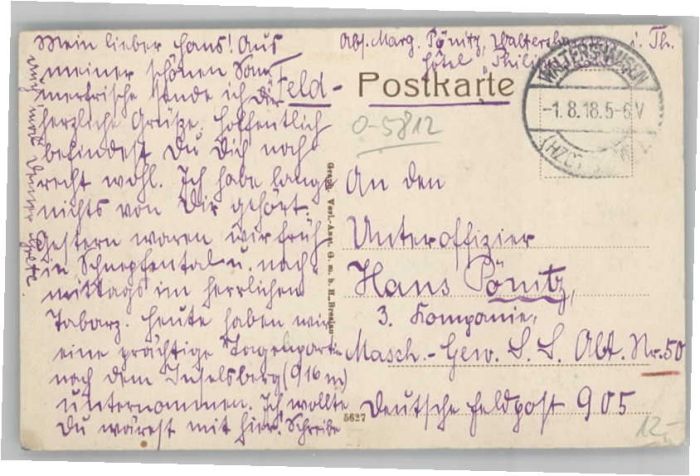 Mein lieber Hans! Aus
meiner schönen Som-
merfrische sende ich dir
herzliche Grüße, hoffentlich
befindest Du Dich noch
recht wohl. Ich habe lang
nichts von Dir gehört.
Gestern waren wir früh
in Schnepfental u. nach-
mittags im herrlichen
Tabarz. Heute haben wir
eine prächtige Tagespartie
nach dem Inselsberg (916 m)
unternommen. Ich wollte
Du wärest mit hier. Schreibe
auch mal Deiner Grete.
Abs. Marg. Pönitz, Waltersh i. Th.
Hotel Phil
Feld-Postkarte
WALTERSHAUSEN
-1.8.18.5-6V
(HZGT.
0-5812
An den
Unteroffizier
Hans Pönitz,
3. Kompanie,
Masch.-Gew. S. S. Abt. Nr. 50
Deutsche Feldpost 905
Graph. Verl.-Anst. G. m. b. H., Breslau
5627
12.-